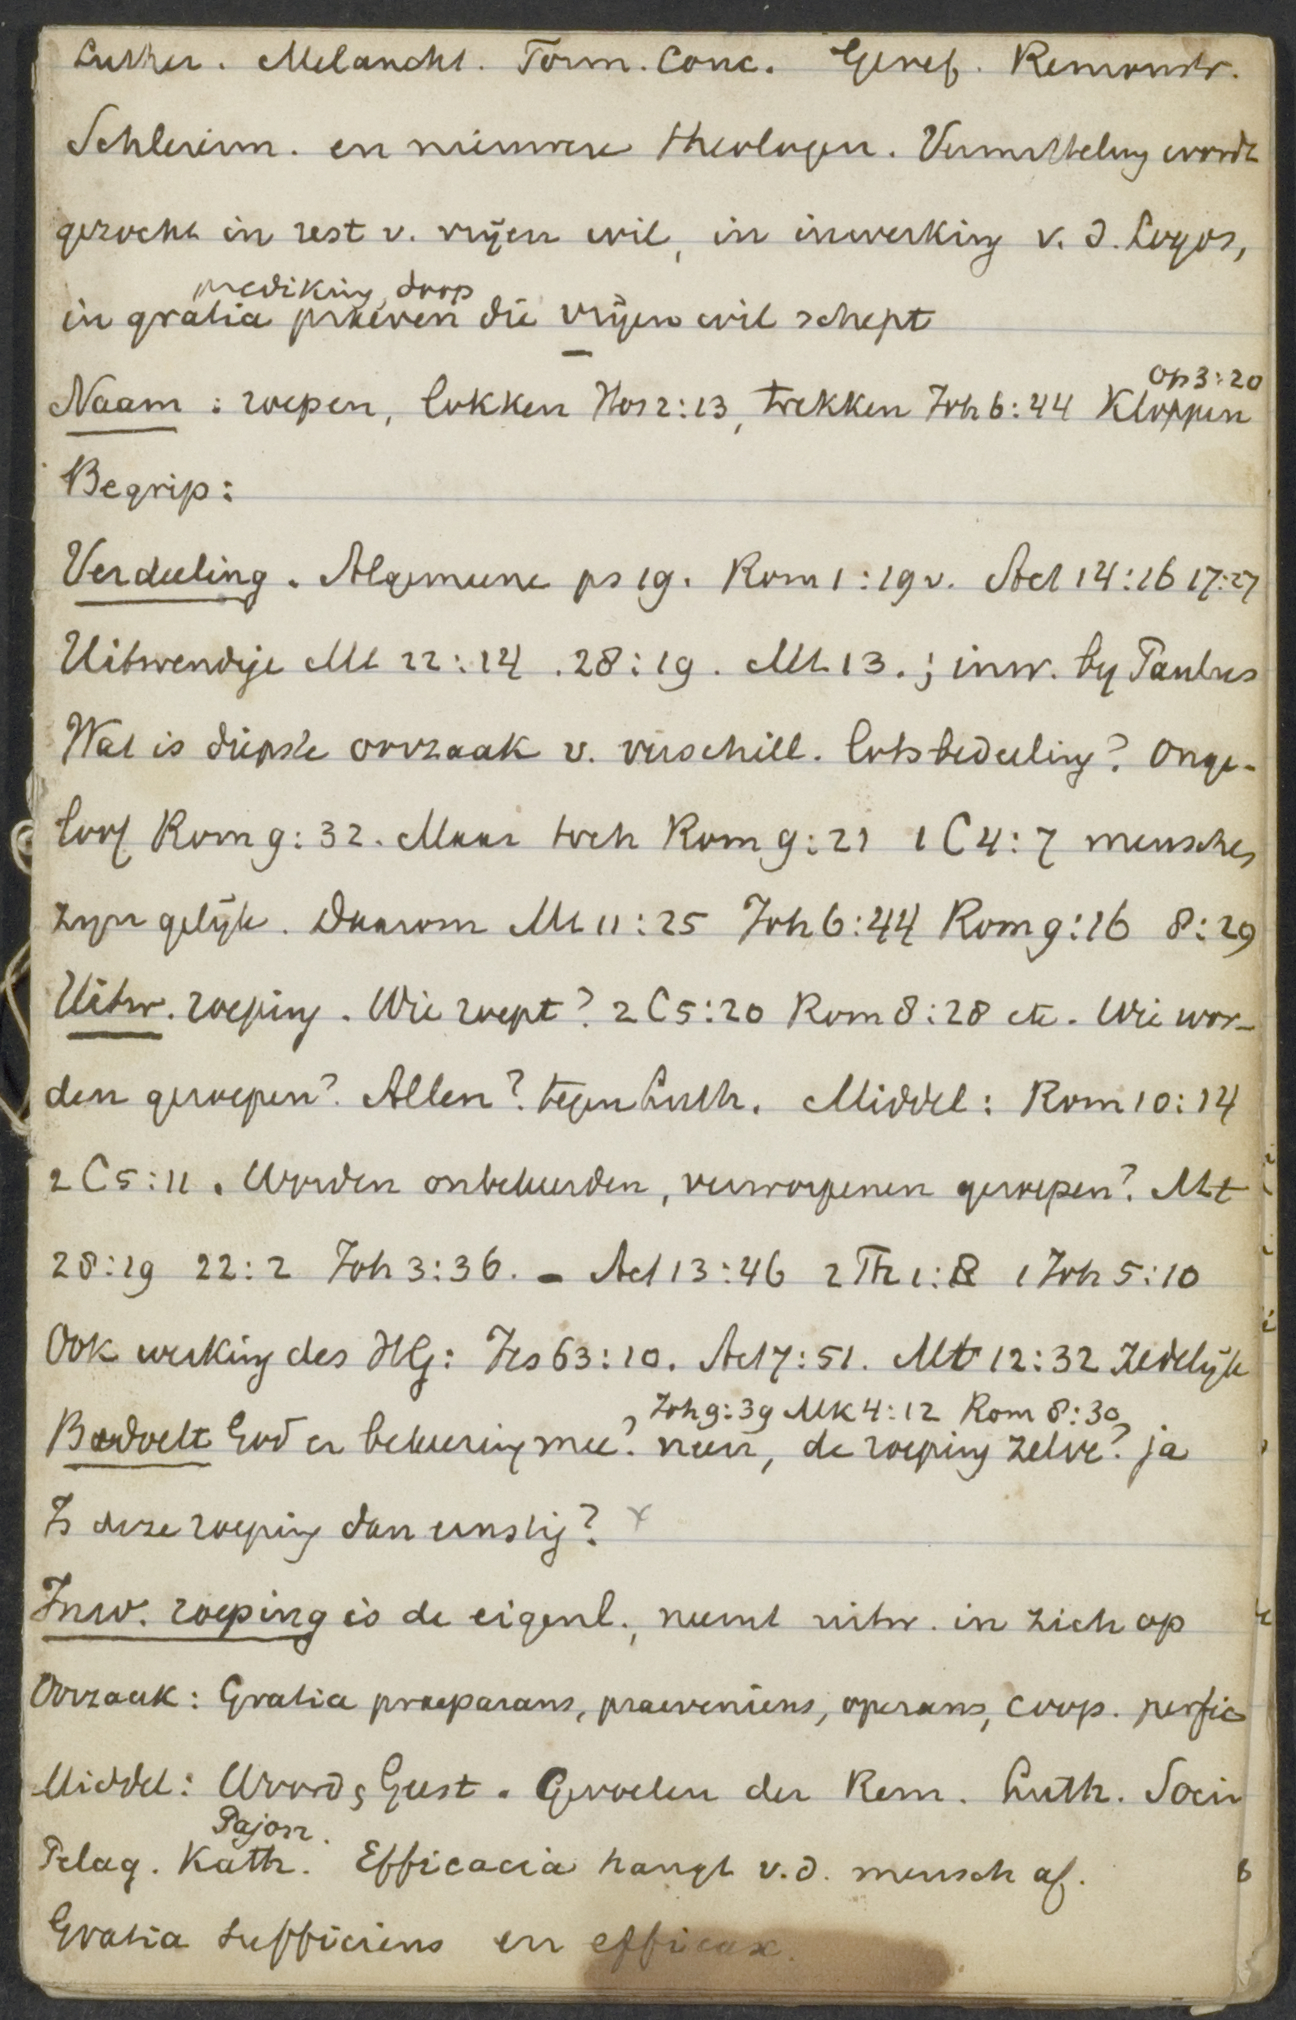 Luther. Melancht. Form. Conc. Geref. Remonstr.
Schleierm. en nieuwere theologen. Vermitteling wordt
gezocht in rest v. vrijen wil, in inwerking v. d. Logos,
prediking, doop
in gratia praeven die vrijen wil schept
Op 3:20
Naam : roepen, lokken Hos 2:13, trekken Joh 6:44 Kloppen
Begrip:
Verdeeling. Algemeene ps 19. Rom 1:19v. Act 14:16 17:27
Uitwendige Mt 22:14 . 28:19. Mt 13.; inw. by Paulus
Wat is diepste oorzaak v. verschill. lotsbedeeling? Onge-
loof Rom 9:32. Maar toch Rom 9:21 1 C 4:7 menschen
zyn gelijk. Daarom Mt 11:25 Joh 6:44 Rom 9:16 8:29
Uitw. roeping. Wie roept? 2 C 5:20 Rom 8:28 etc. Wie wor-
den geroepen? Allen? tegen Luth. Middel: Rom 10:14
2 C 5:11. Worden onbekeerden, verworpenen geroepen? Mt
28:19 22:2 Joh 3:36. - Act 13:46 2 Th 1:8 1 Joh 5:10
Ook werking des HG: Jes 63:10. Act 7:51. Mt 12:32 Zedelijk
Joh 9:39 Mk 4:12 Rom 8:30
Bedoelt God er bekeering mee? neen, de roeping zelve? ja
Is deze roeping dan ernstig? x
Inw. roeping is de eigenl., neemt uitw. in zich op
Oorzaak: Gratia praeparans, praeveniens, operans, coop. perfic
Middel: Woord, Geest. Gevoelen der Rem. Luth. Socin
Pajon.
Pelag. Kath. Efficacia hangt v.d. mensch af.
Gratia sufficiens en efficax.